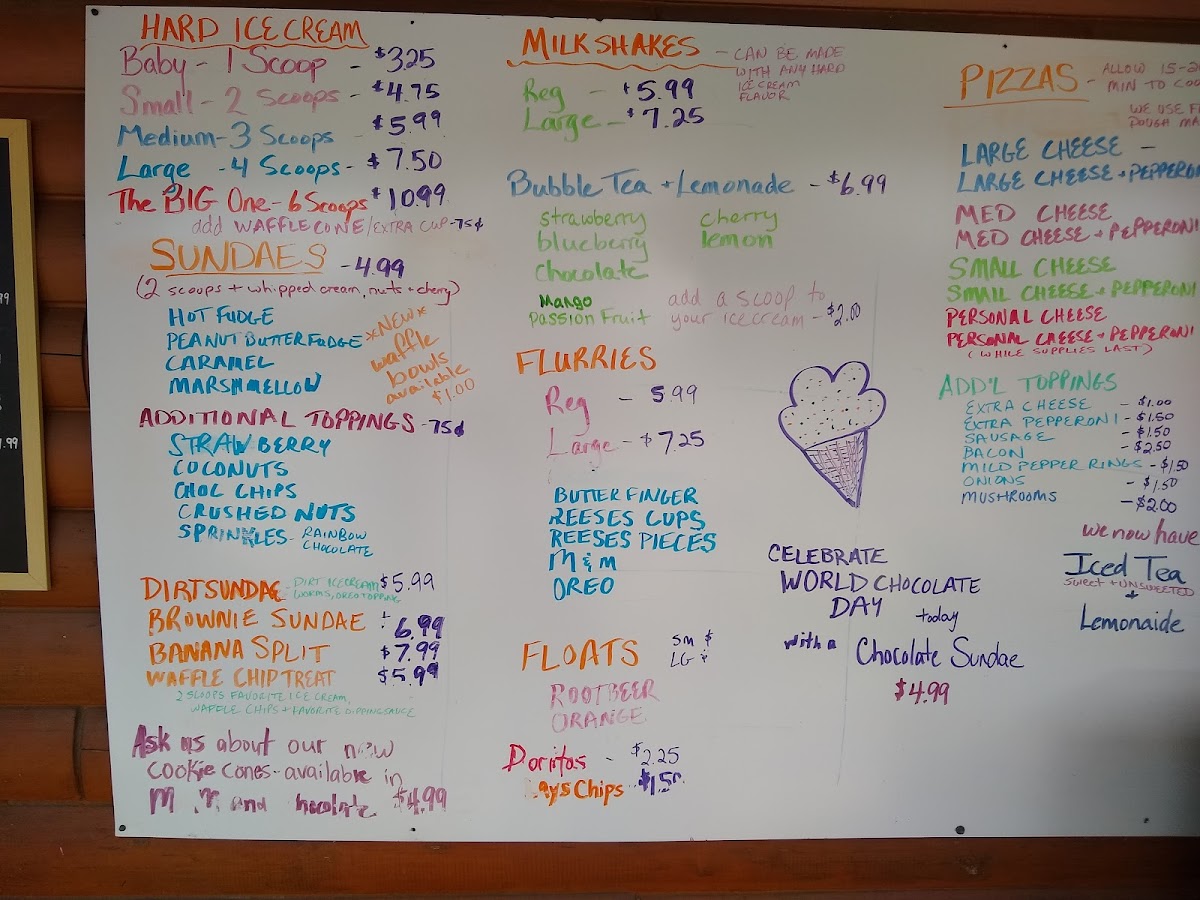 HARD ICE CREAM
Baby - 1 Scoop - $3.25
Small - 2 Scoops - $4.75
Medium - 3 Scoops - $5.99
Large - 4 Scoops - $7.50
The BIG One - 6 Scoops $10.99
add WAFFLE CONE/EXTRA CUP - 75¢
SUNDAES - 4.99
(2 scoops + whipped cream, nuts + cherry)
HOT FUDGE
PEANUT BUTTER FUDGE
CARAMEL
MARSHMELLOW
*NEW*
waffle
bowls
available
$1.00
ADDITIONAL TOPPINGS - 75¢
STRAWBERRY
COCONUTS
CHOC CHIPS
CRUSHED NUTS
SPRINKLES - RAINBOW
CHOCOLATE
DIRT SUNDAE - DIRT ICE CREAM $5.99
WORMS, OREO TOPPING
BROWNIE SUNDAE - 6.99
BANANA SPLIT $7.99
WAFFLE CHIP TREAT $5.99
2 SCOOPS FAVORITE ICE CREAM,
WAFFLE CHIPS + FAVORITE DIPPING SAUCE
Ask us about our new
cookie cones - available in
and $4.99
MILKSHAKES - CAN BE MADE
WITH ANY HARD
ICE CREAM
FLAVOR
Reg - $5.99
Large - $7.25
Bubble Tea + Lemonade - $6.99
strawberry cherry
blueberry lemon
chocolate
Mango
Passion Fruit
add a scoop to
your ice cream - $2.00
FLURRIES
Reg - 5.99
Large - $7.25
BUTTERFINGER
REESES CUPS
REESES PIECES
M & M
OREO
FLOATS SM $
LG $
ROOTBEER
ORANGE
Doritos - $2.25
ays Chips - $1.50
CELEBRATE
WORLD CHOCOLATE
DAY today
with a Chocolate Sundae
$4.99
PIZZAS - ALLOW 15-2
MIN TO COO
WE USE F
DOUGH MA
LARGE CHEESE -
LARGE CHEESE + PEPPERON
MED CHEESE
MED CHEESE + PEPPERONI
SMALL CHEESE
SMALL CHEESE + PEPPERONI
PERSONAL CHEESE
PERSONAL CHEESE + PEPPERONI
(WHILE SUPPLIES LAST)
ADD'L TOPPINGS
EXTRA CHEESE - $1.00
EXTRA PEPPERONI - $1.50
SAUSAGE - $1.50
BACON - $2.50
MILD PEPPER RINGS - $1.50
ONIONS - $1.50
MUSHROOMS - $2.00
we now have
Iced Tea
SWEET + UNSWEETED
+
Lemonaide